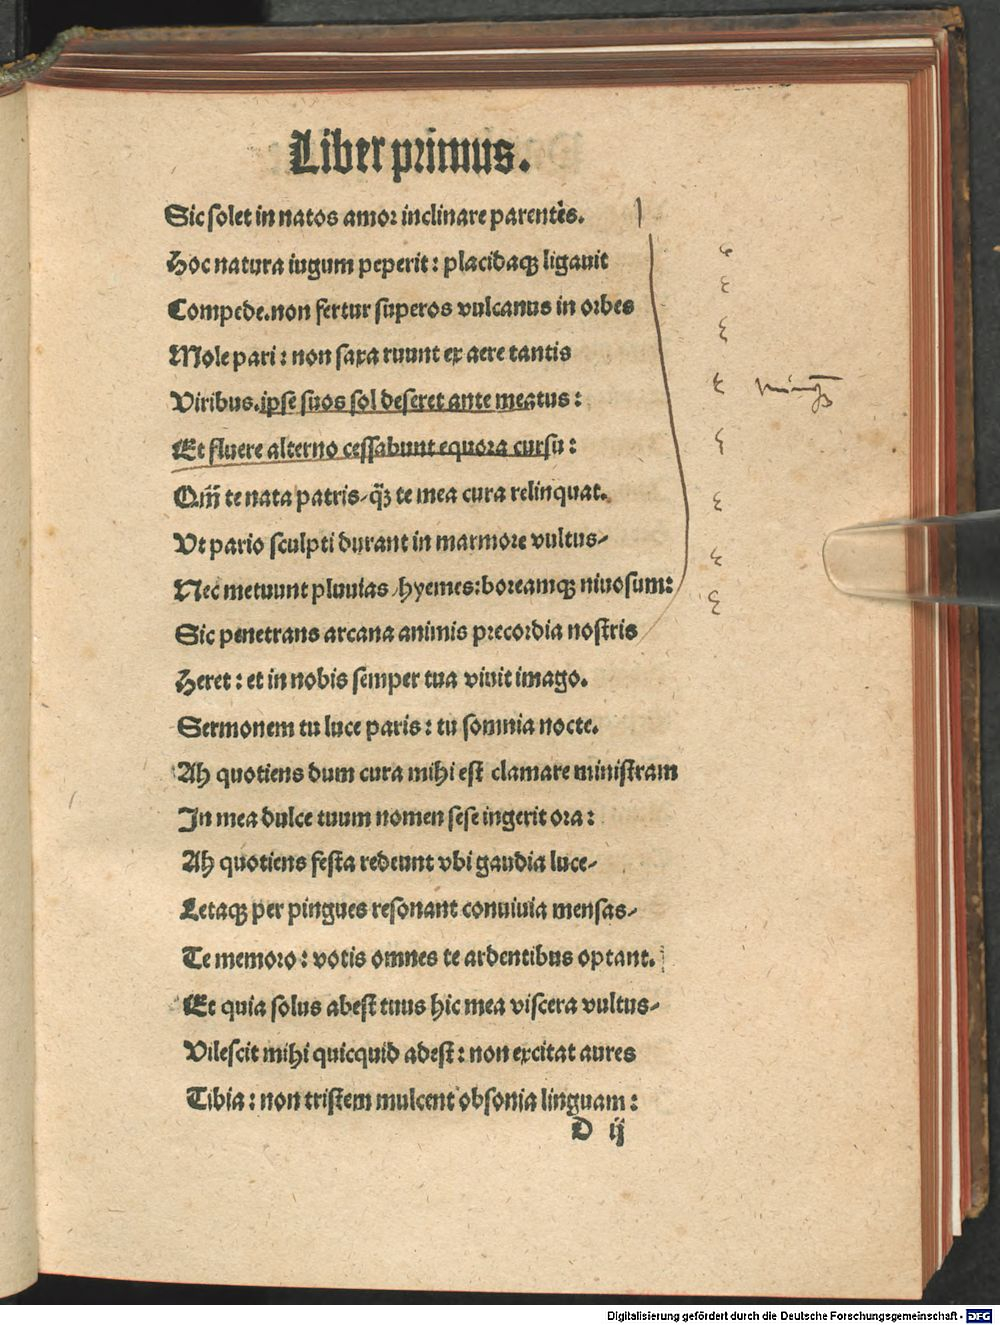 Liber primus.
Sic solet in natos amor inclinare parentes.
Hoc natura iugum peperit: placidaqꝫ ligauit
Compede.non fertur superos vulcanus in orbes
Mole pari: non saxa ruunt ex aere tantis
Viribus.ipse suos sol deseret ante meatus:
Et fluere alterno cessabunt equora cursu:
te nata patris/ te mea cura relinquat.
Ut pario sculpti durant in marmore vultus/
Nec metuunt pluuias/hyemes:boreamqꝫ niuosum:
Sic penetrans arcana animis precordia nostris
Heret: et in nobis semper tua viuit imago.
Sermonem tu luce paris: tu somnia nocte.
Ah quotiens dum cura mihi est clamare ministram
In mea dulce tuum nomen sese ingerit ora:
Ah quotiens festa redeunt vbi gaudia luce/
Letaqꝫ per pingues resonant conuiuia mensas/
Te memoro: votis omnes te ardentibus optant.
Et quia solus abest tuus hic mea viscera vultus/
Vilescit mihi quicquid adest: non excitat aures
Tibia: non tristem mulcent obsonia linguam:
D ij
Digitalisierung gefördert durch die Deutsche Forschungsgemeinschaft - DFG